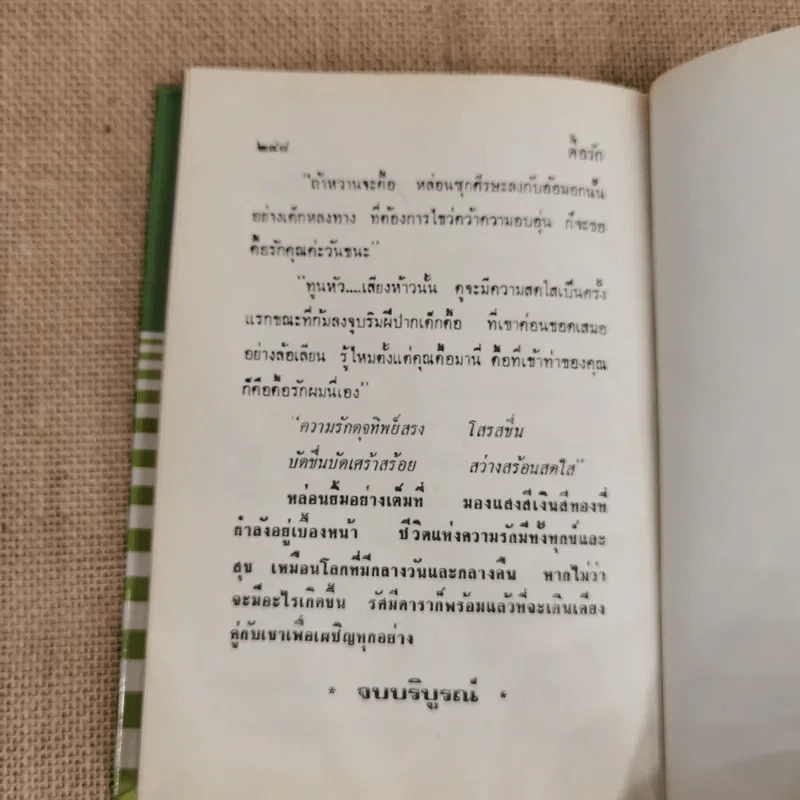 ๒๔๘ ดื้อรัก
"ถ้าหวานจะดื้อ หล่อนซุกศีรษะลงกับอ้อมอกนั้น
อย่างเด็กหลงทาง ที่ต้องการไขว่คว้าความอบอุ่น ก็จะขอ
ดื้อรักคุณค่ะวันชนะ"
"ทูนหัว....เสียงห้าวนั้น ดูจะมีความสดใสเป็นครั้ง
แรกขณะที่ก้มลงจูบริมฝีปากเด็กดื้อ ที่เขาค่อนขอดเสมอ
อย่างล้อเลียน รู้ไหมตั้งแต่คุณดื้อมานี่ ดื้อที่เข้าท่าของคุณ
ก็คือดื้อรักผมนี่เอง"
"ความรักดุจทิพย์สรง โสรสชื่น
บัดชื่นบัดเศร้าสร้อย สว่างสร้อนสดใส"
หล่อนยิ้มอย่างเต็มที่ มองแสงสีเงินสีทองที่
กำลังอยู่เบื้องหน้า ชีวิตแห่งความรักมีทั้งทุกข์และ
สุข เหมือนโลกที่มีกลางวันและกลางคืน หากไม่ว่า
จะมีอะไรเกิดขึ้น รัศมีดาราก็พร้อมแล้วที่จะเดินเคียง
คู่กับเขาเพื่อเผชิญทุกอย่าง
* จบบริบูรณ์ *